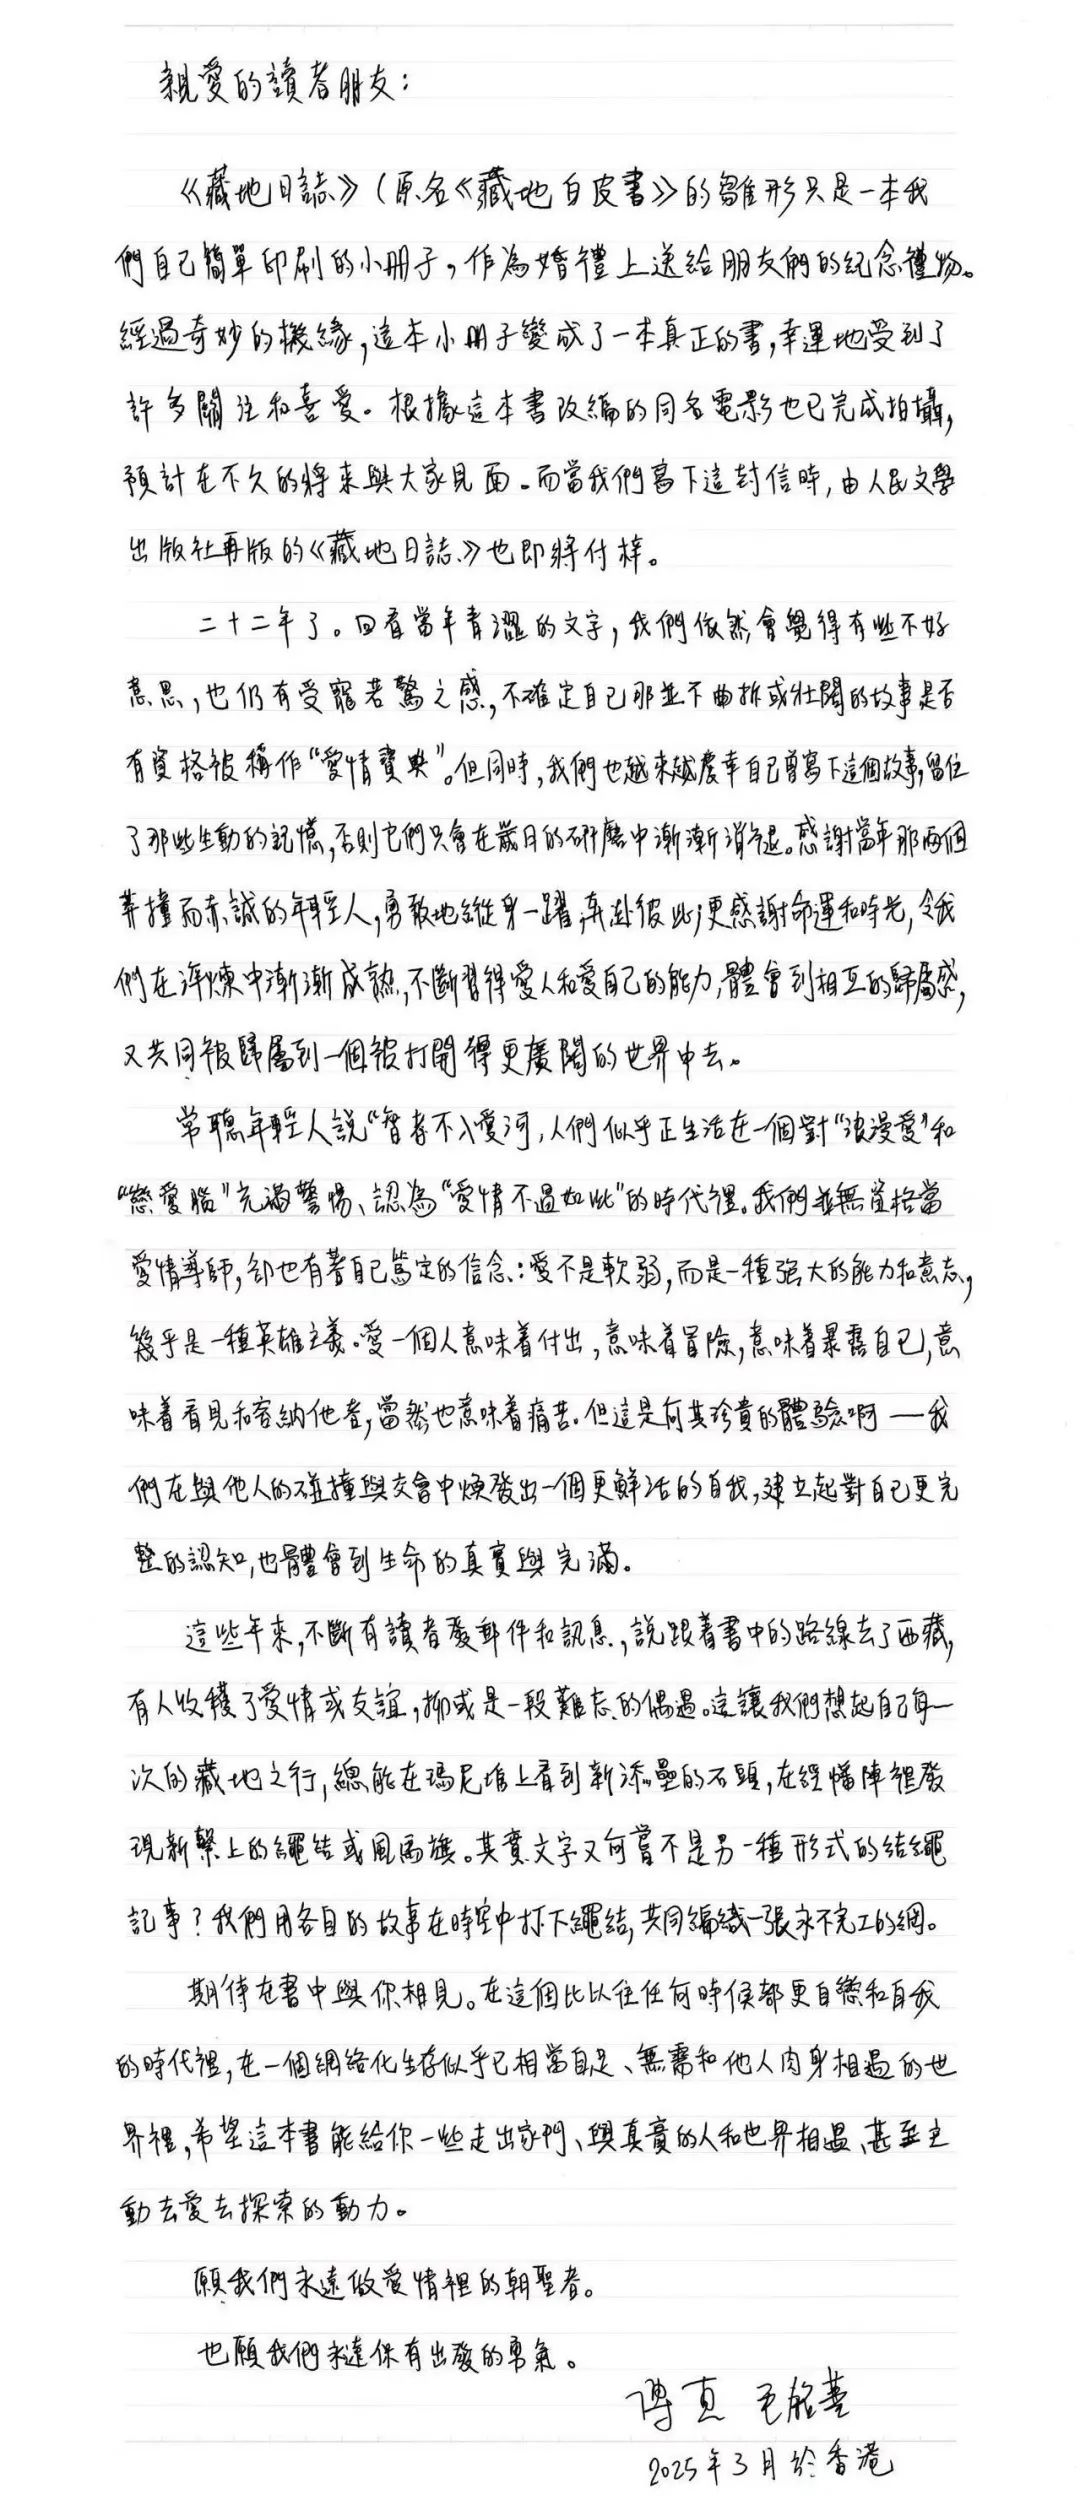 親愛的讀者朋友：
《藏地日誌》（原名《藏地白皮書》的雛形只是一本我
們自己簡單印刷的小冊子，作為婚禮上送給朋友們的紀念禮物。
經過奇妙的機緣，這本小冊子變成了一本真正的書，幸運地受到了
許多關注和喜愛。根據這本書改編的同名電影也已完成拍攝，
預計在不久的將來與大家見面。而當我們寫下這封信時，由人民文學
出版社再版的《藏地日誌》也即將付梓。
二十二年了。回看當年青澀的文字，我們依然會覺得有些不好
意思，也仍有受寵若驚之感，不確定自己那並不曲折或壯闊的故事是否
有資格被稱作“愛情寶典”。但同時，我們也越來越慶幸自己曾寫下這個故事，留住
了那些生動的記憶，否則它們只會在歲月的研磨中漸漸消退。感謝當年那兩個
莽撞而赤誠的年輕人，勇敢地縱身一躍，奔赴彼此；更感謝命運和時光，令我
們在淬煉中漸漸成熟，不斷習得愛人和愛自己的能力，體會到相互的歸屬感，
又共同被歸屬到一個被打開得更廣闊的世界中去。
常聽年輕人說“智者不入愛河，人們似乎正生活在一個對“浪漫愛”和
“戀愛腦”充滿警惕、認為“愛情不過如此”的時代裡。我們並無資格當
愛情導師，卻也有著自己篤定的信念：愛不是軟弱，而是一種強大的能力和意志，
幾乎是一種英雄主義。愛一個人意味着付出，意味着冒險，意味着暴露自己，意
味着看見和容納他者，當然也意味着痛苦。但這是何其珍貴的體驗啊——我
們在與他人的碰撞與交會中煥發出一個更鮮活的自我，建立起對自己更完
整的認知，也體會到生命的真實與完滿。
這些年來，不斷有讀者發郵件和訊息，說跟着書中的路線去了西藏，
有人收穫了愛情或友誼，抑或是一段難忘的偶遇。這讓我們想起自己每一
次的藏地之行，總能在瑪尼堆上看到新添壘的石頭，在經幡陣裡發
現新繫上的繩結或風馬旗。其實文字又何嘗不是另一種形式的結繩
記事？我們用各自的故事在時空中打下繩結，共同編織一張永不完工的網。
期待在書中與你相見。在這個比以往任何時候都更自戀和自我
的時代裡，在一個網絡化生存似乎已相當自足、無需和他人肉身相遇的世
界裡，希望這本書能給你一些走出家門、與真實的人和世界相遇、甚至主
動去愛去探索的動力。
願我們永遠做愛情裡的朝聖者。
也願我們永遠保有出發的勇氣。
傅真 毛銘基
2025年3月於香港